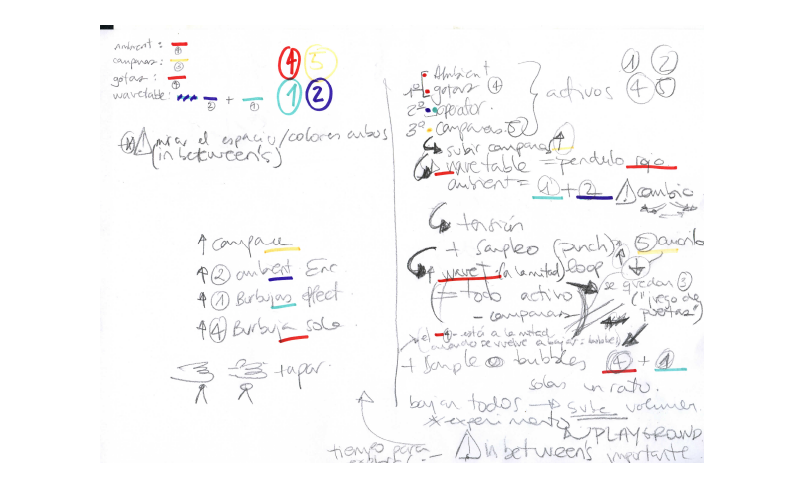 Ambient:
④
campanas:
⑤
gotas:
④
wavetable:
②
+
①
④ ⑤
① ②
mirar el espacio/colores ambos
(in between's)
↑ campanae
↑ ② ambient Enc
↑ ① Burbujas effect
↑ ④ Burbuja solo
+ tapar.
Ambient
1º gotas ④
2º
3º campanas ⑤
activos
① ②
④ ⑤
subir campanas ↑
wavetable = pendulo rojo
ambient = ① + ② cambio
tensión
+ sampleo (punch) * ⑤ amarillo
↑ waveT. (a la mitad) loop
(= todo activo
- campanas
se quedan
("juego de
puertas")
④ está a la mitad
cuando se vuelve a bajar: bubbles)
+ sample bubbles ④ + ①
solas un rato.
bajan todos → sube volumen
* experimento
PLAYGROUND
tiempo para
In between's importante